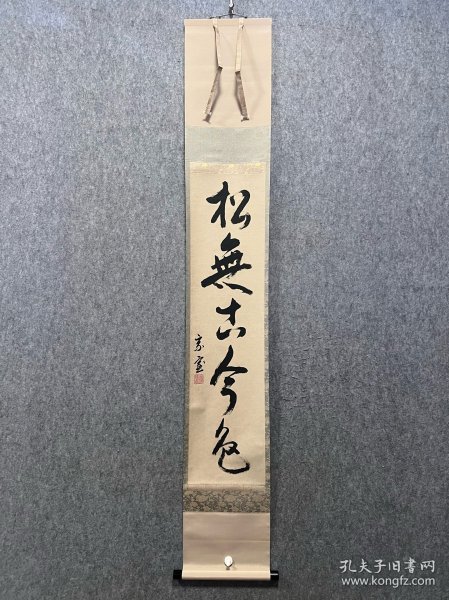 松無古今色
宗室
孔夫子旧书网
www.kongfz.com